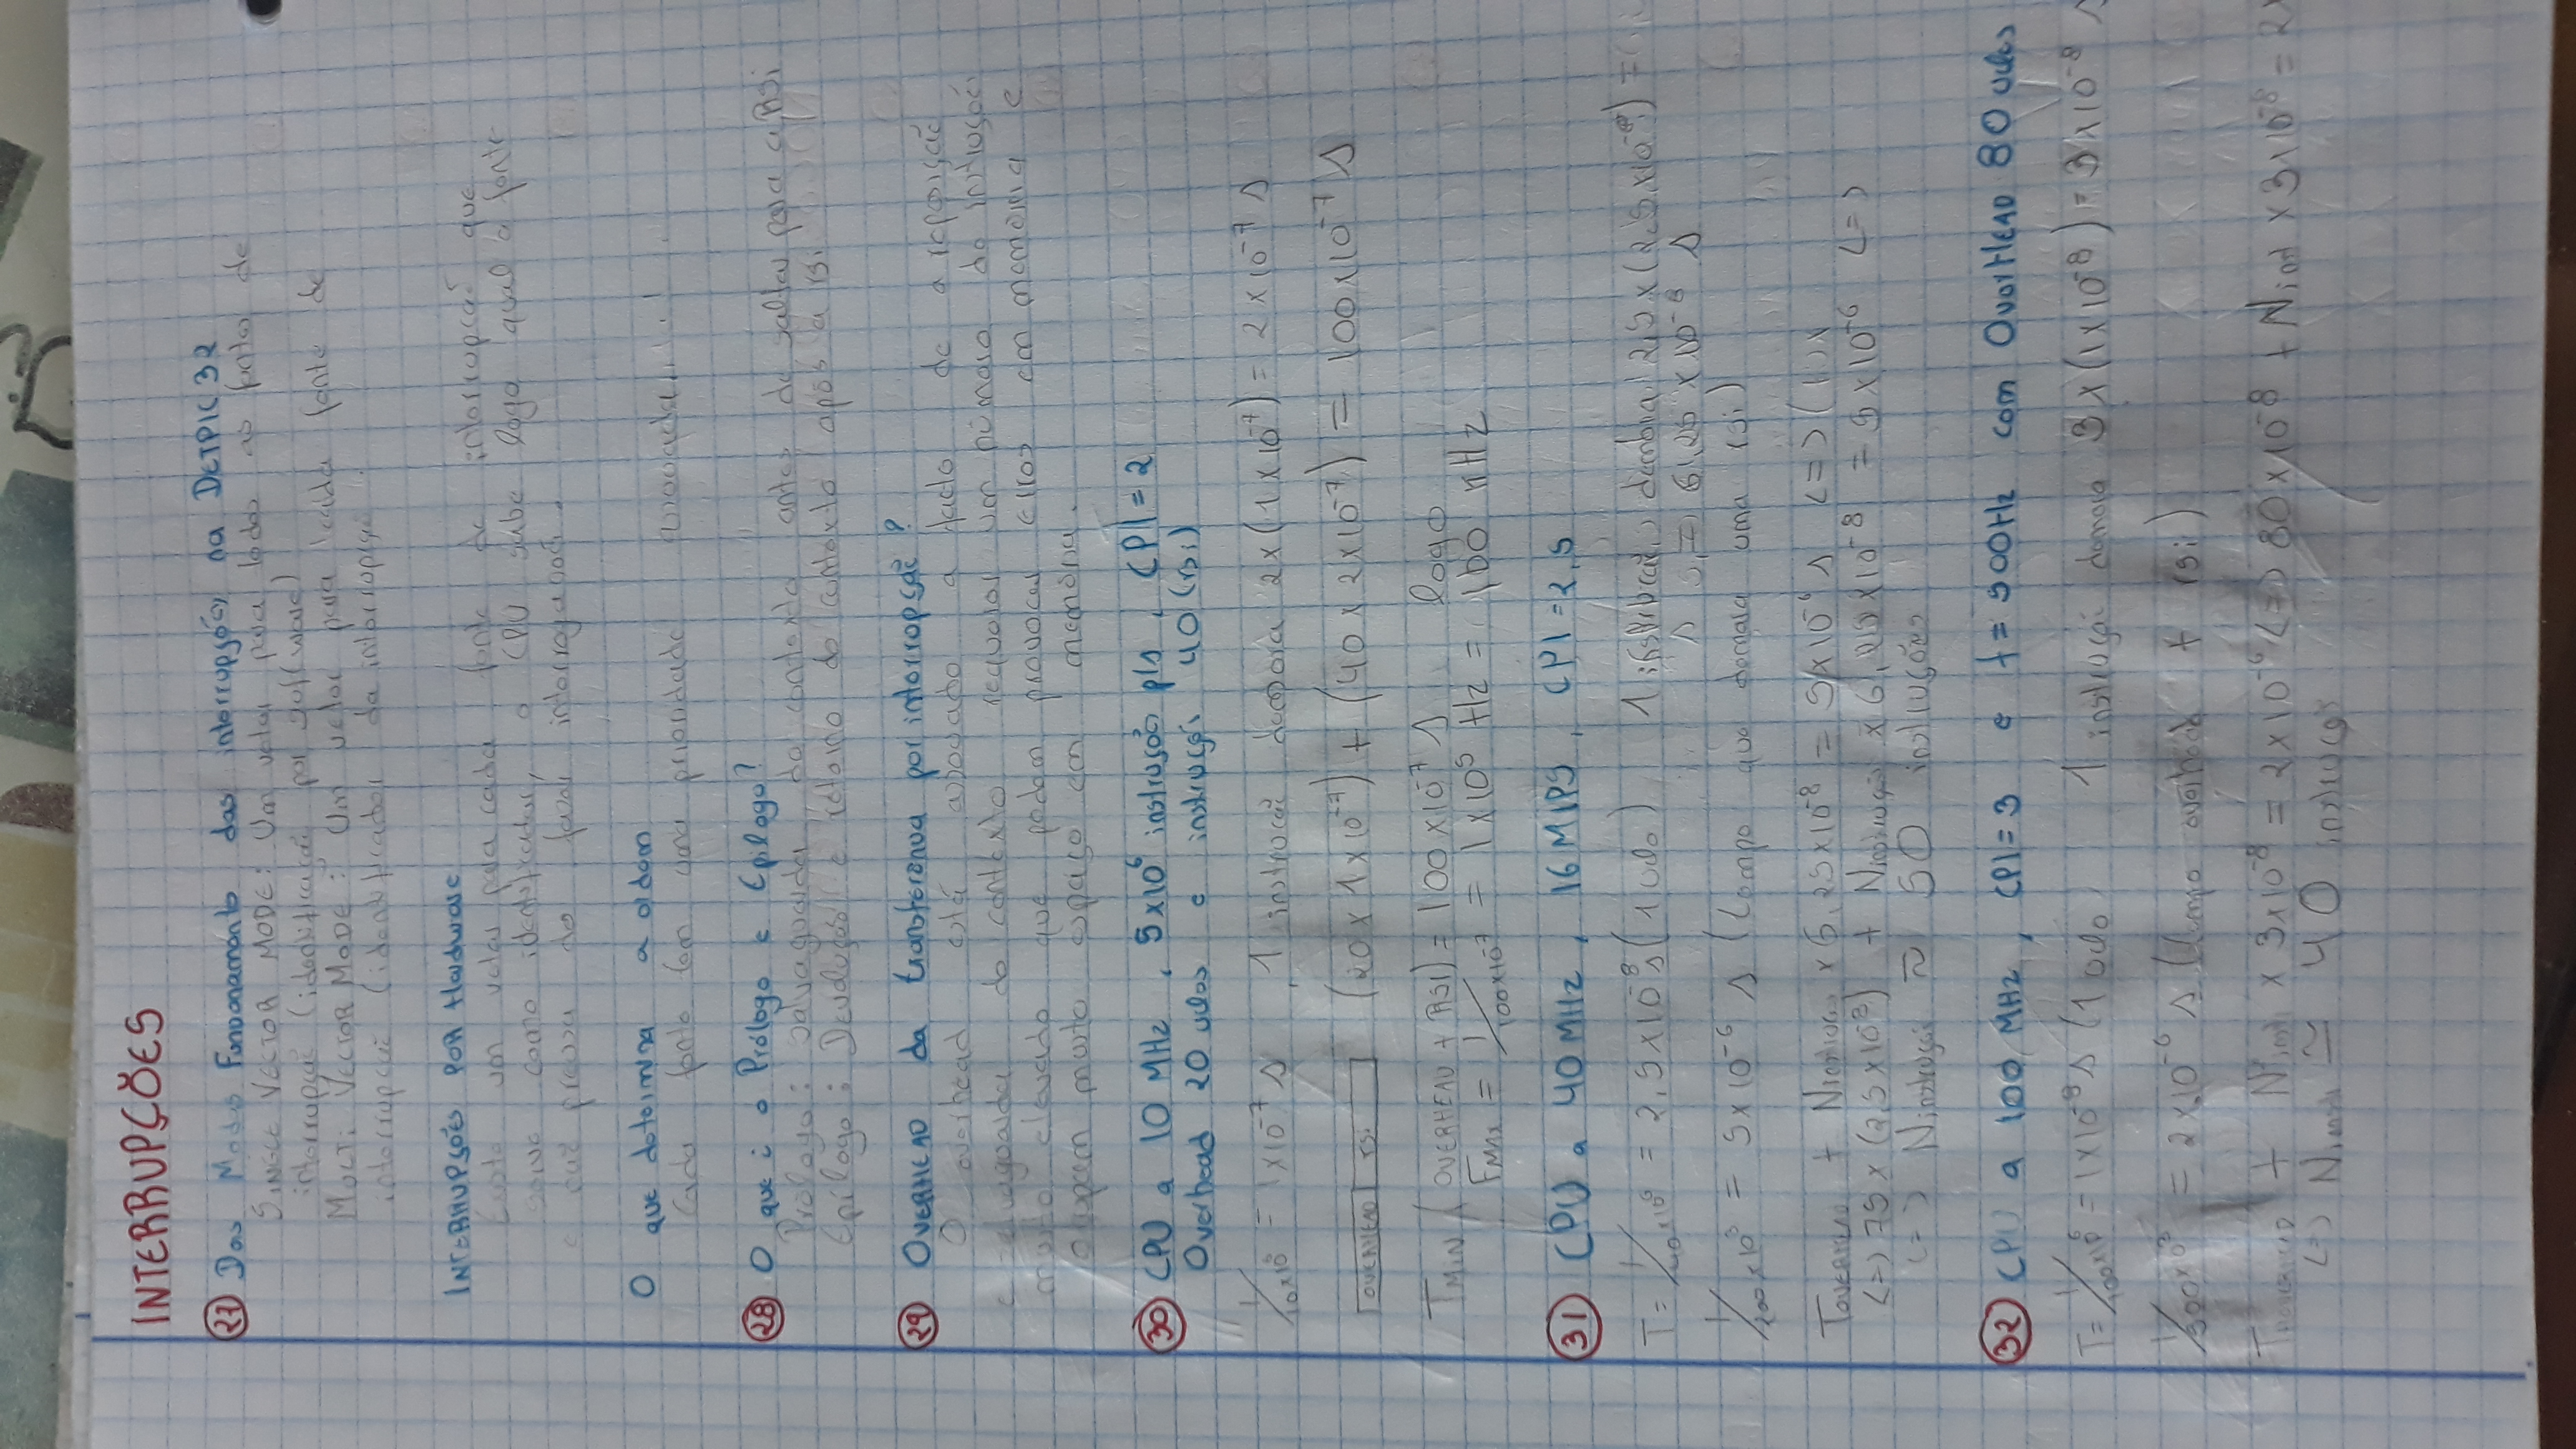 INTERRUPÇÕES
27 Dos Modos Funcionamento das interrupções da DETPIC32
SINGLE VECTOR MODE: Um vetor para todas as fontes de
interrupção (identificação por software)
MULTI VECTOR MODE: Um vetor para cada fonte de
interrupção (identificador da interrupção
INTERRUPSÕES POR Hardware
Existe um vetor para cada fonte de interrupção que
serve como identificador, o CPU sabe logo qual a fonte
e precisa de fazer
O que determina a ordem
Cada fonte tem uma prioridade associada
28 O que é o Prólogo e Epílogo?
Prólogo: Salvaguarda do contexto antes de saltar para a RSi
Epílogo: Devolução e retorno do contexto após a rsi
29 OVERHEAD da transferência por interrupção?
O overhead está associado a facto de a reposição
e salvaguarda do contexto requerer um número de instruções
muito elevado que podem provocar erros em memória e
ocupem muito espaço em memória.
30 CPU a 10 MHz, 5x10⁶ instruções p/s, CPI = 2
Overhead 20 ciclos e instruções 40 (rsi)
1/10x10⁶ = 1x10⁻⁷ s, 1 instrução demora 2x(1x10⁻⁷) = 2x10⁻⁷ s
OVERHEAD rsi (20x1x10⁻⁷) + (40x2x10⁻⁷) = 100x10⁻⁷ s
TMIN (OVERHEAD + RSI) = 100x10⁻⁷ s logo
FMAX = 1/100x10⁻⁷ = 1x10⁵ Hz = 100 kHz
31 CPU a 40 MHz, 16 MIPS, CPI = 2,5
T = 1/40x10⁶ = 2,5x10⁻⁸ s (1 ciclo) 1 instrução demora 2,5x(2,5x10⁻⁸) =
= 6,25x10⁻⁸ s
1/200x10³ = 5x10⁻⁶ s (tempo que demora uma rsi)
TOVERHEAD + Ninstruções x 6,25x10⁻⁸ = 5x10⁻⁶ s <=>
<=> 75x(2,5x10⁻⁸) + Ninstruções x 6,25x10⁻⁸ = 5x10⁻⁶ <=>
<=> Ninstruções ≈ 50 instruções
32 CPU a 100 MHz, CPI = 3 e f = 500Hz com OverHEAD 80 ciclos
T = 1/100x10⁶ = 1x10⁻⁸ s (1 ciclo 1 instrução demora 3x(1x10⁻⁸) = 3x10⁻⁸ s
1/500x10³ = 2x10⁻⁶ s (tempo overhead + rsi)
TOVERHEAD + Ninst x 3x10⁻⁸ = 2x10⁻⁶ <=> 80x10⁻⁸ + Ninst x 3x10⁻⁸ = 2x
<=> Ninst ≃ 40 instruções